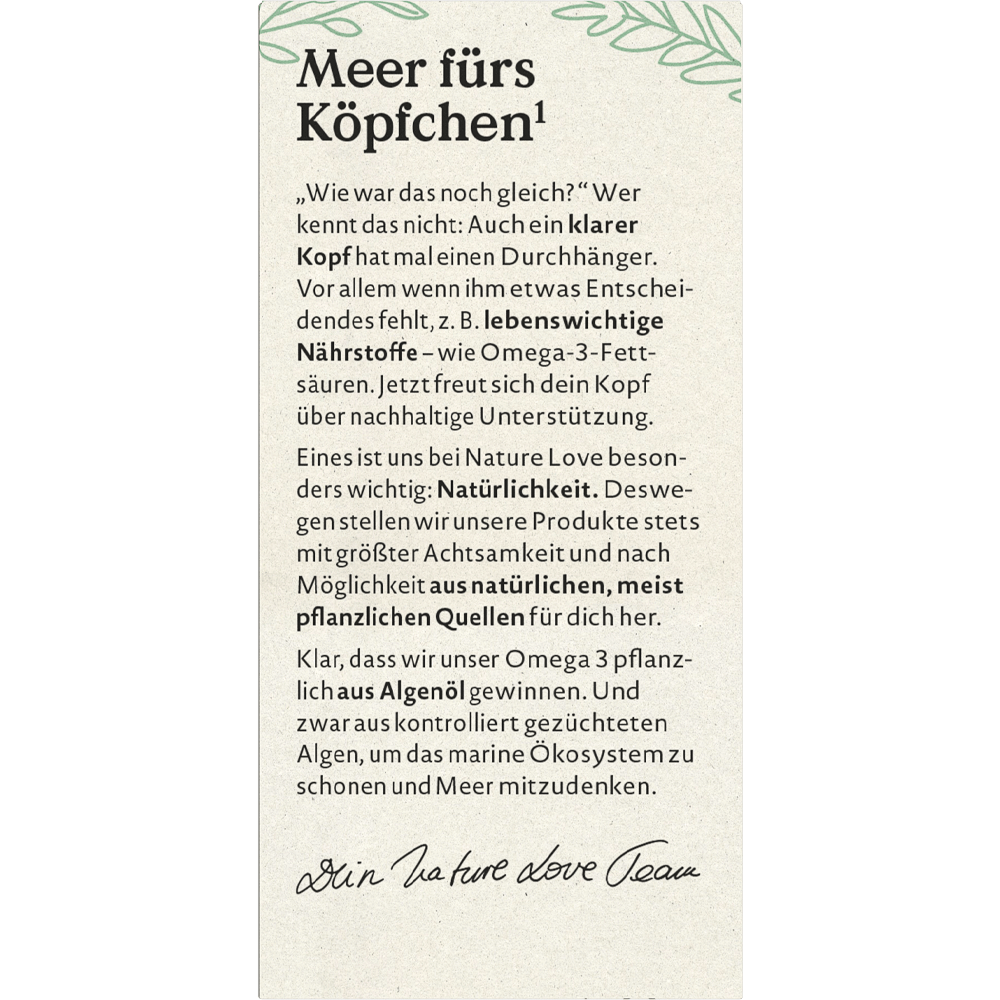 Meer fürs
Köpfchen¹
„Wie war das noch gleich?“ Wer
kennt das nicht: Auch ein klarer
Kopf hat mal einen Durchhänger.
Vor allem wenn ihm etwas Entschei-
dendes fehlt, z. B. lebenswichtige
Nährstoffe – wie Omega-3-Fett-
säuren. Jetzt freut sich dein Kopf
über nachhaltige Unterstützung.
Eines ist uns bei Nature Love beson-
ders wichtig: Natürlichkeit. Deswe-
gen stellen wir unsere Produkte stets
mit größter Achtsamkeit und nach
Möglichkeit aus natürlichen, meist
pflanzlichen Quellen für dich her.
Klar, dass wir unser Omega 3 pflanz-
lich aus Algenöl gewinnen. Und
zwar aus kontrolliert gezüchteten
Algen, um das marine Ökosystem zu
schonen und Meer mitzudenken.
Dein Nature Love Team